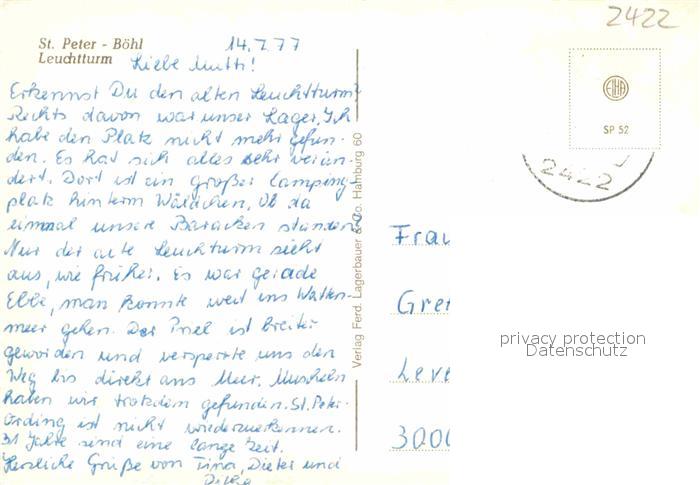 2422
St. Peter - Böhl
Leuchtturm
14.7.77
Liebe Mutti!
Erkennst Du den alten Leuchtturm?
Rechts davon war unser Lager. Ich
habe den Platz nicht mehr gefun-
den. Es hat sich alles sehr verän-
dert. Dort ist ein großer Camping-
platz hinterm Wäldchen. Ob da
einmal unsere Baracken standen?
Nur der alte Leuchtturm sieht
aus, wie früher. Es war gerade
Ebbe, man konnte weit ins Watten-
meer gehen. Der Priel ist breiter
geworden und versperrte uns den
Weg bis direkt ans Meer. Muscheln
haben wir trotzdem gefunden. St. Peter-
Ording ist nicht wiederzuerkennen.
31 Jahre sind eine lange Zeit.
Herzliche Grüße von Tina, Dieter und
Verlag Ferd. Lagerbauer & Co. Hamburg 60
SP 52
2422
Frau
Gret
Leve
3000
privacy protection
Datenschutz